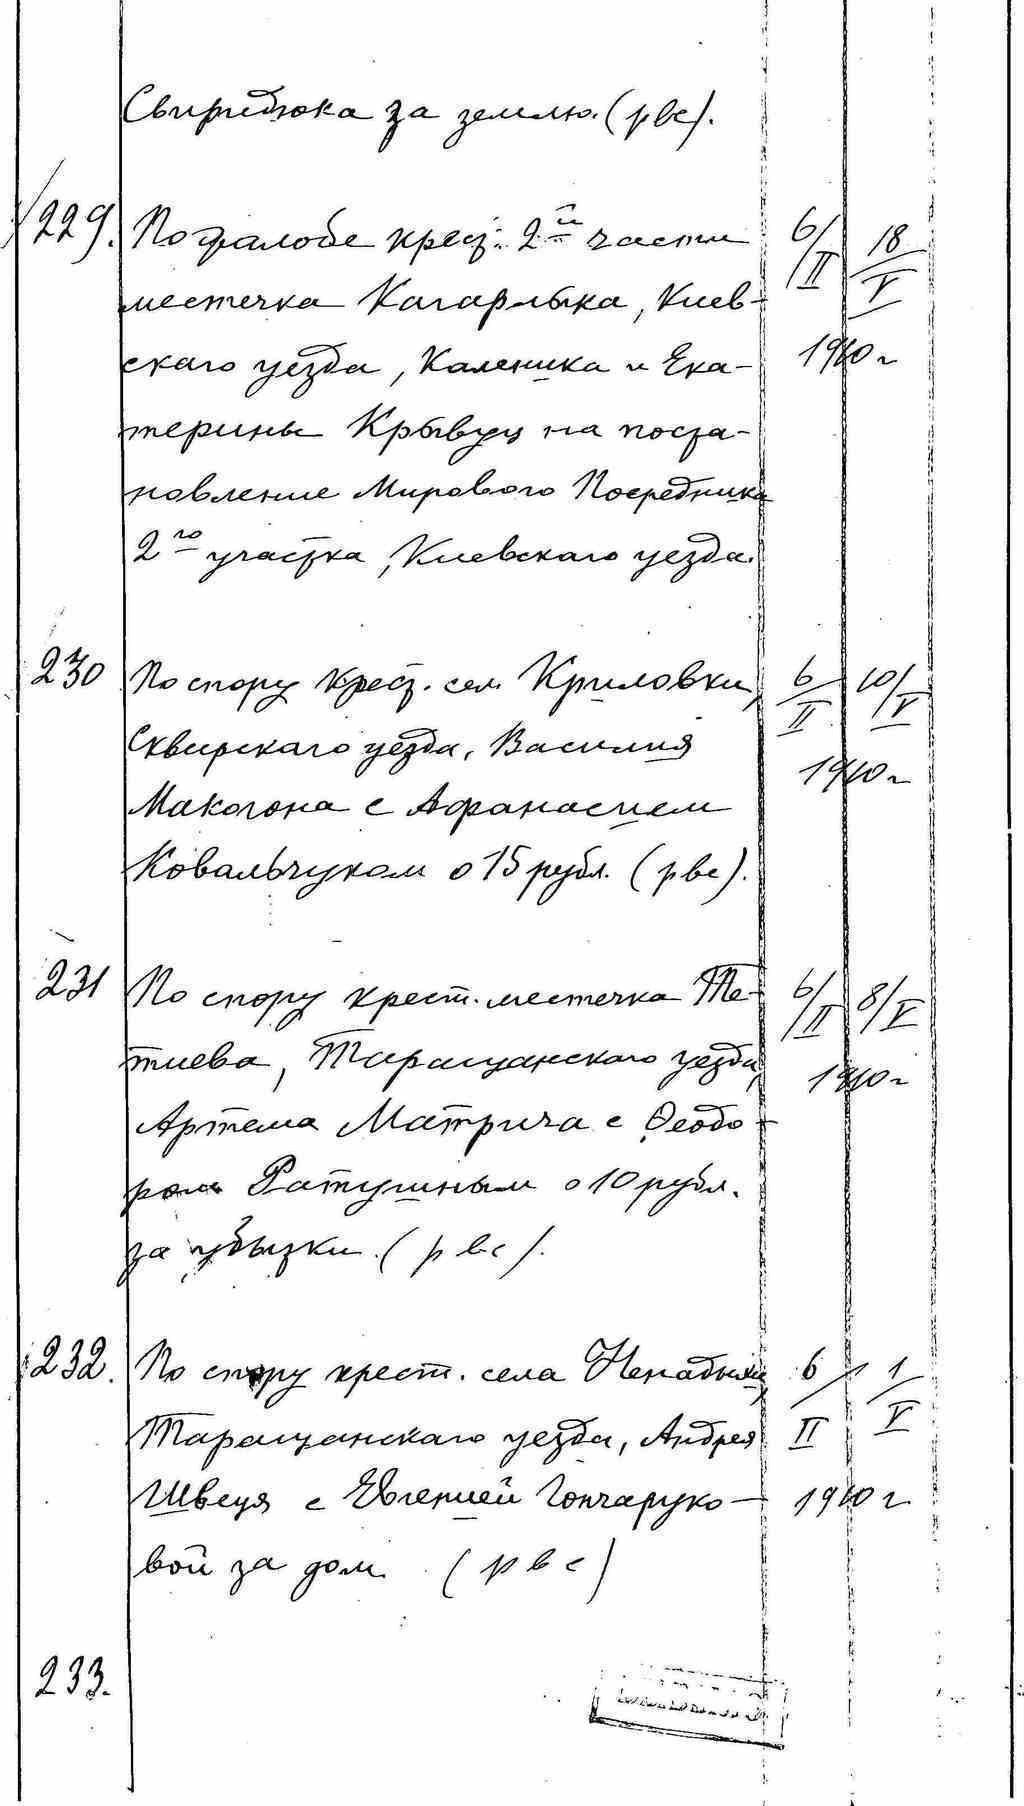 Свиридюка за землю. (рвс).
229. По жалобе крест. 2й части 6/II 18/V
местечка Кагарлыка, Киев-
скаго уезда, Каленика и Ека- 1910 г
терины Крывуц на поста-
новление Мирового Посредника
2го участка, Киевскаго уезда.
230 По спору крест. сел. Криловки, 6/II 10/V
Сквирскаго уезда, Василия 1910 г
Макогона с Афанасием
Ковальчуком о 15 рубл. (рвс).
231 По спору крест. местечка Те- 6/II 8/V
тиева, Таращанскаго уезда, 1910 г
Артема Матрича с Феодо-
ром Ратушным о 10 рубл.
за убытки. (рвс).
232. По спору крест. села Ненадыхи, 6/II 1/V
Таращанскаго уезда, Андрея
Швеця с Евгенией Гончаруко- 1910 г
вой за дом. (рвс)
233.